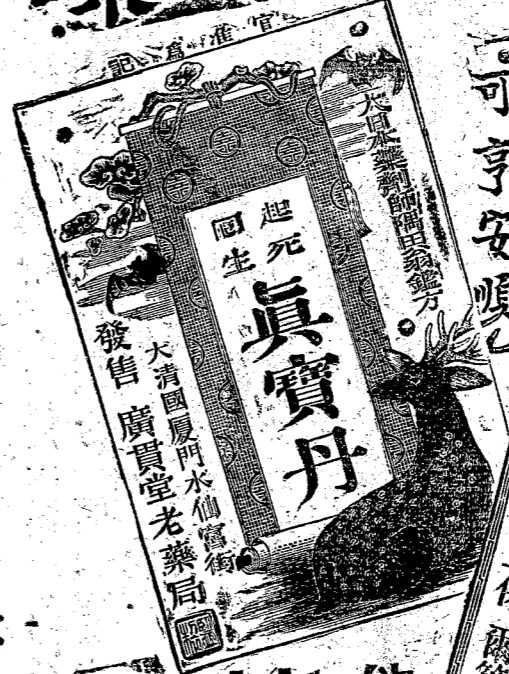 官准爲記
大日本藥劑師隅田翁鑑方
起死
回生
眞寶丹
大清國厦門水仙宮街
發售 廣貫堂老藥局
可亨安順